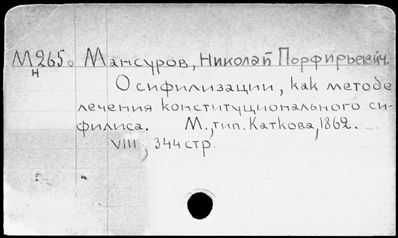 М265. Мансуров, Николай Порфирьевич.
н
О сифилизации, как методе
лечения конституционального си-
филиса. М., тип. Каткова, 1862.
VIII, 344 стр.